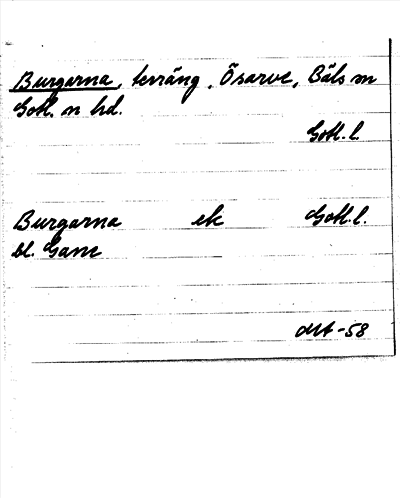 Burgarna, terräng, Ösarve, Bäls sn
Gotl. n hd.
Gotl. l.
Burgarna ek Gotl. l.
bl. Gann
-58